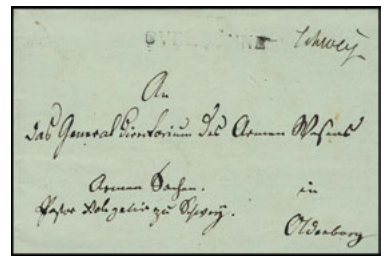 Schwey
An
das General Directorium des Armen Wesens
Armen Sachen.
in
Pastor zu Schwey.
Oldenburg